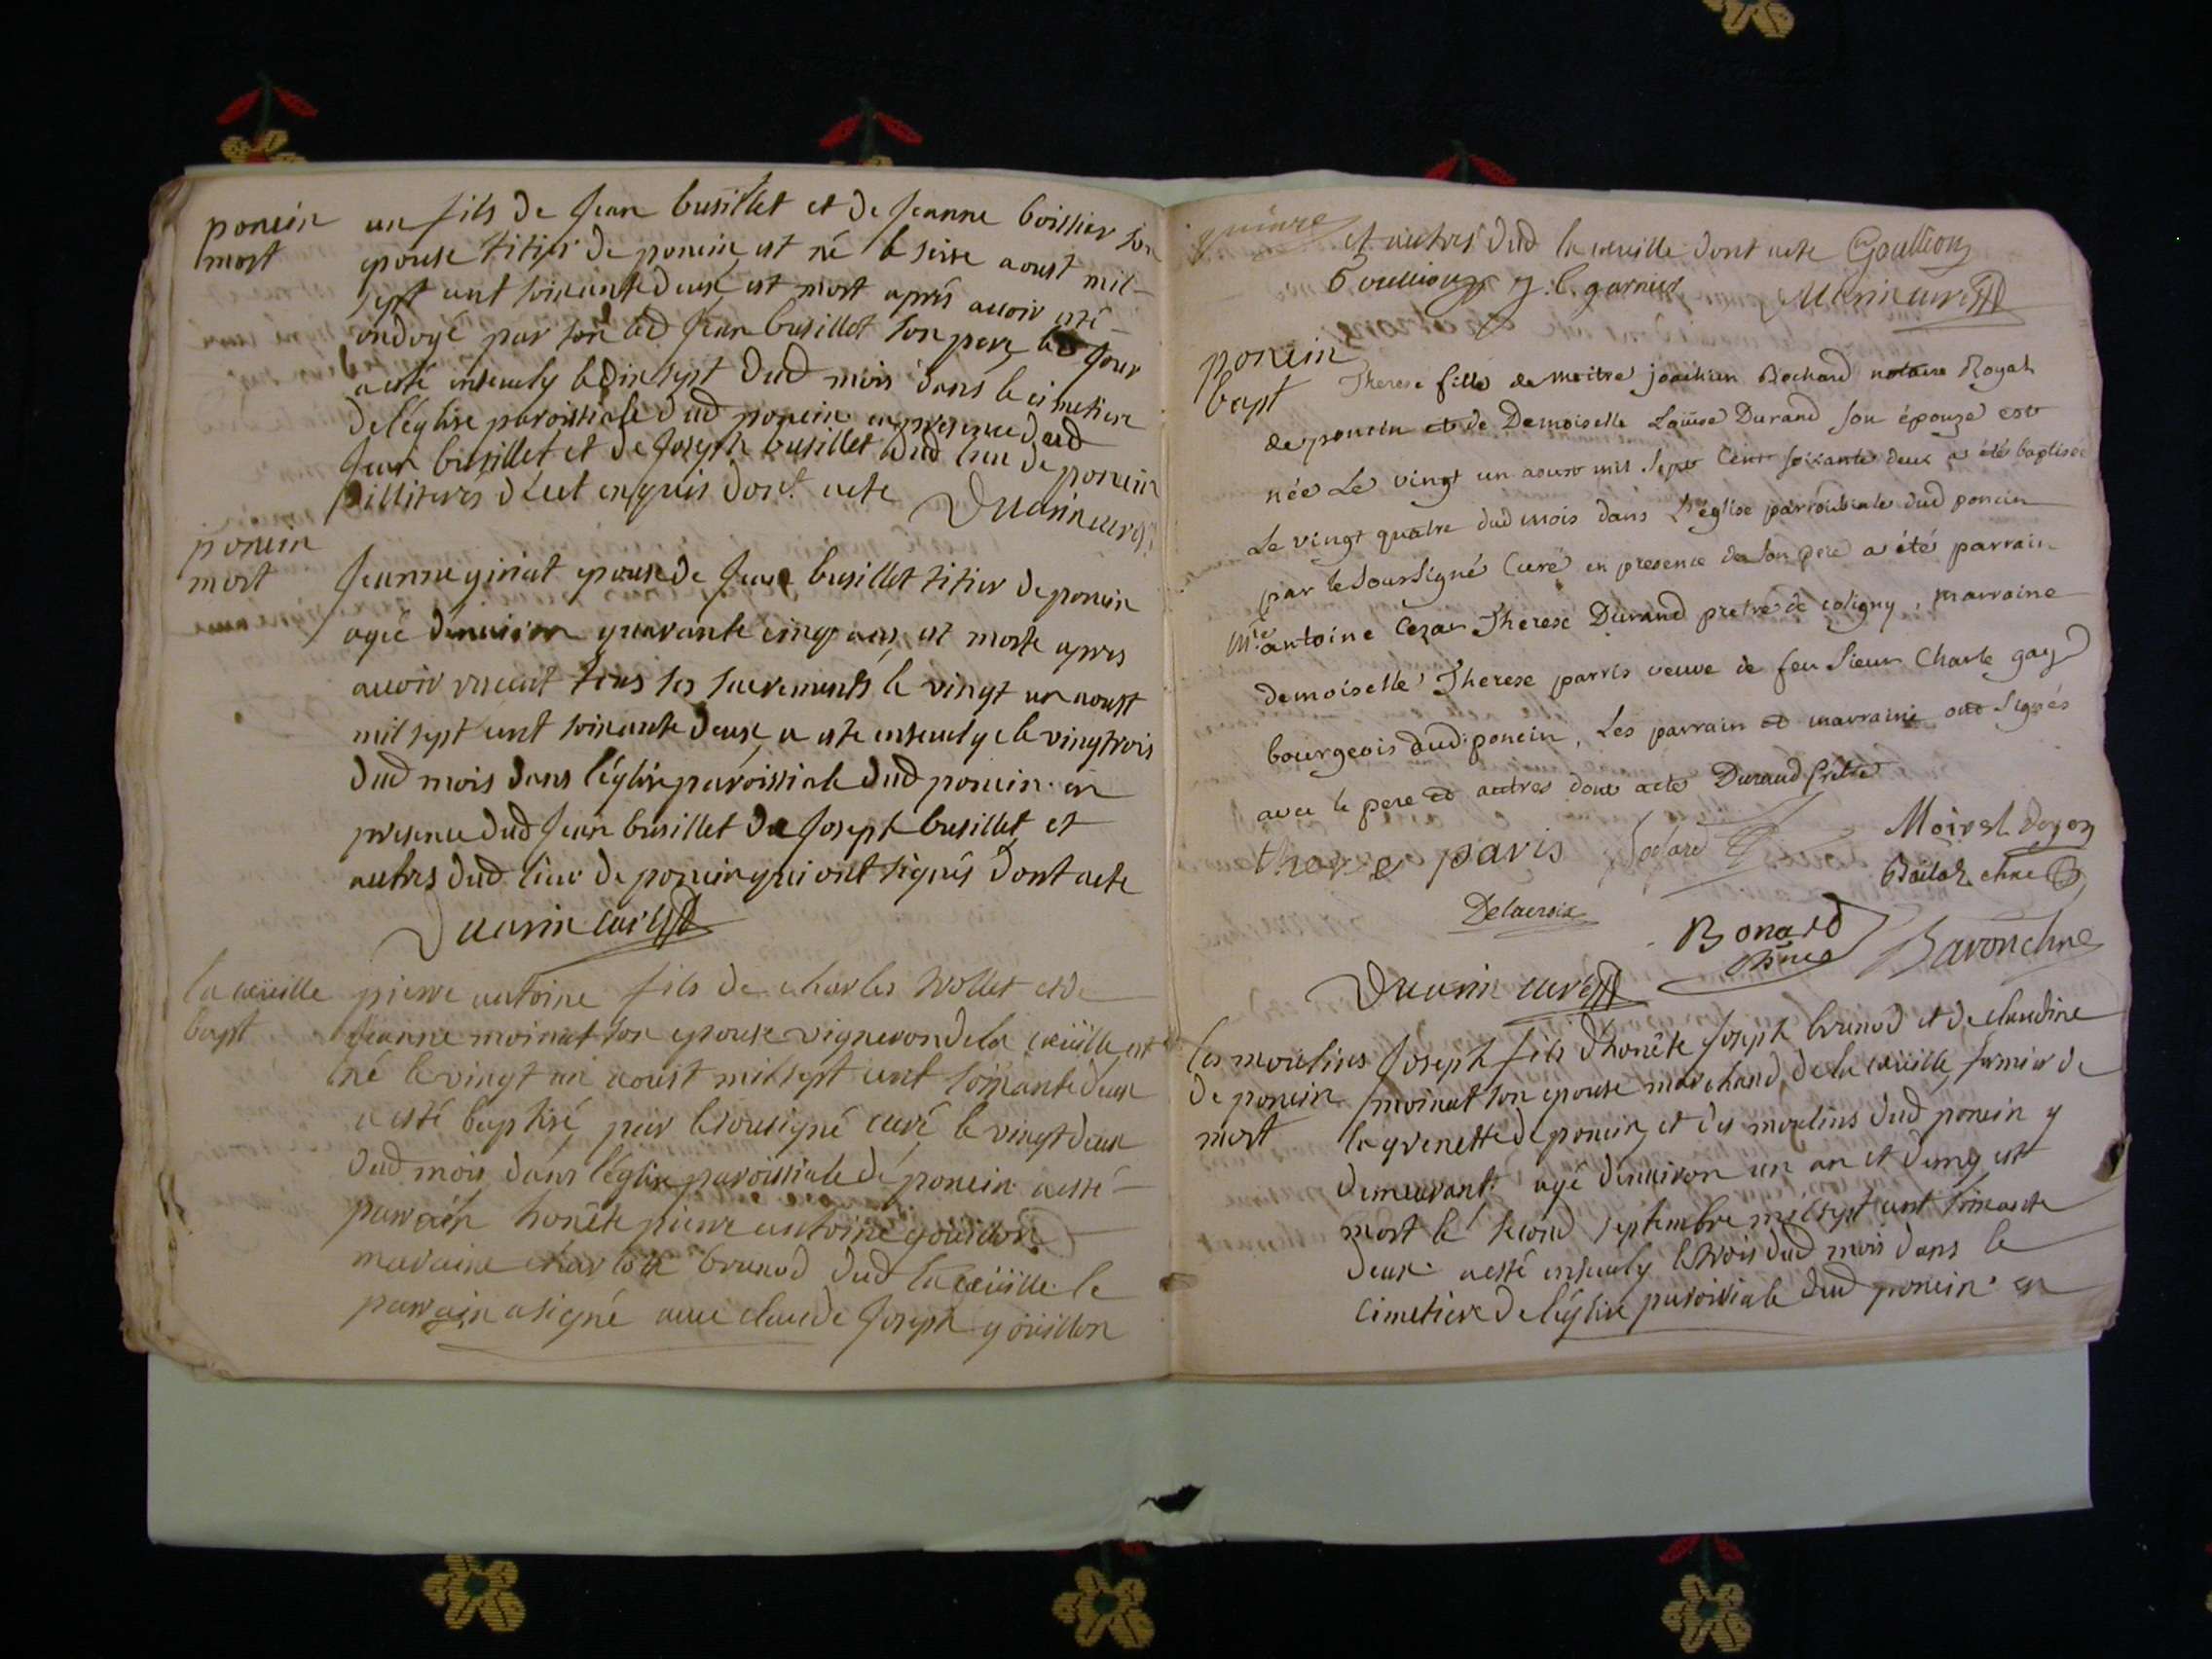 poncin
mort
un fils de Jean busillet et de Jeanne boissier son
epouse titier de poncin est né le seise aoust mil
sept cent soixante deux, est mort aprés auoir esté
ondoyé par led Jean busillet son pere, led Jour
a esté inseuely le dix sept dud mois dans le cimetiere
de léglise paroissiale dud poncin en presence dud
Jean busillet et de Joseph busillet dud lieu de poncin
illiterés de ce enquis dont acte
poncin
mort
Jeanne ginat epouse de Jean busillet titier de poncin
agée denuiron quarante cinq ans, est morte apres
auoir receut tous ses sacrements le vingt un aoust
mil sept cent soixante deux, a esté inseuelye le vingtrois
dud mois dans léglise paroissiale dud poncin en
presence dud Jean busillet de Joseph busillet, et
autres dud lieu de poncin qui ont signés dont acte
curé
la cüeille
bapt
pierre antoine fils de charles trollet et de
Jeanne moinat son epouse vigneron de la cüeille, est
né le vingt un aoust mil sept cent soixante deux
a esté baptisé par le sousigné curé le vingt deux
dud mois dans léglise paroissiale de poncin a esté
parrain honête pierre antoine goüillon
maraine charlote brunod dud la cueille le
parrain a signé auec claude Joseph goüillon
et autres dud la cueille dont acte Goullioux
Goullioux J. C. garnier
curé
poncin
bapt
Therese fille de maitre joachim Bochard notaire Royal
de poncin et de Demoiselle Louïse Durand son épouze est
née Le vingt un aoust mil Sept Cent soixante deux a été baptisée
Le vingt quatre dud mois dans L'église parroissiale dud poncin
par le soussigné Curé en presence de son pere a été parrain
Mre antoine Cezar Therese Durand pretre de coligny, marraine
demoiselle Therese parris veuve de feu Sieur Charle gay
bourgeois dud poncin, Les parrain et marraine ont Signés
avec le pere et autres dont acte Durand Prêtre
therese paris
Moirel doyen
Delacroix
Bonard
chne
Baron chne
curé
les moulins
de poncin
mort
Joseph fils d'honête Joseph brunod et de claudine
moinat son epouse marchand, de la cüeille, fermier de
la grenette de poncin, et des moulins dud poncin y
demeurant agé denuiron un an et demy est
mort le second septembre mil sept cent soixante
deux a esté inseuely le trois dud mois dans le
cimetiere de léglise paroissiale dud poncin en